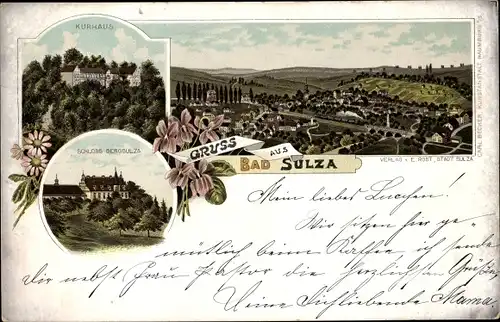 KURHAUS
SCHLOSS BERGSULZA
GRUSS AUS
BAD SULZA
VERLAG v. E. ROST, STADT SULZA
CARL BECKER, KUNSTANSTALT NAUMBURG
Mein liebes Luschen!
Wir sitzen hier ge-
mütlich beim Kaffee, ich sende
Dir nebst Frau Pastor die herzlichsten Grüße
Deine Dichliebende Mama.